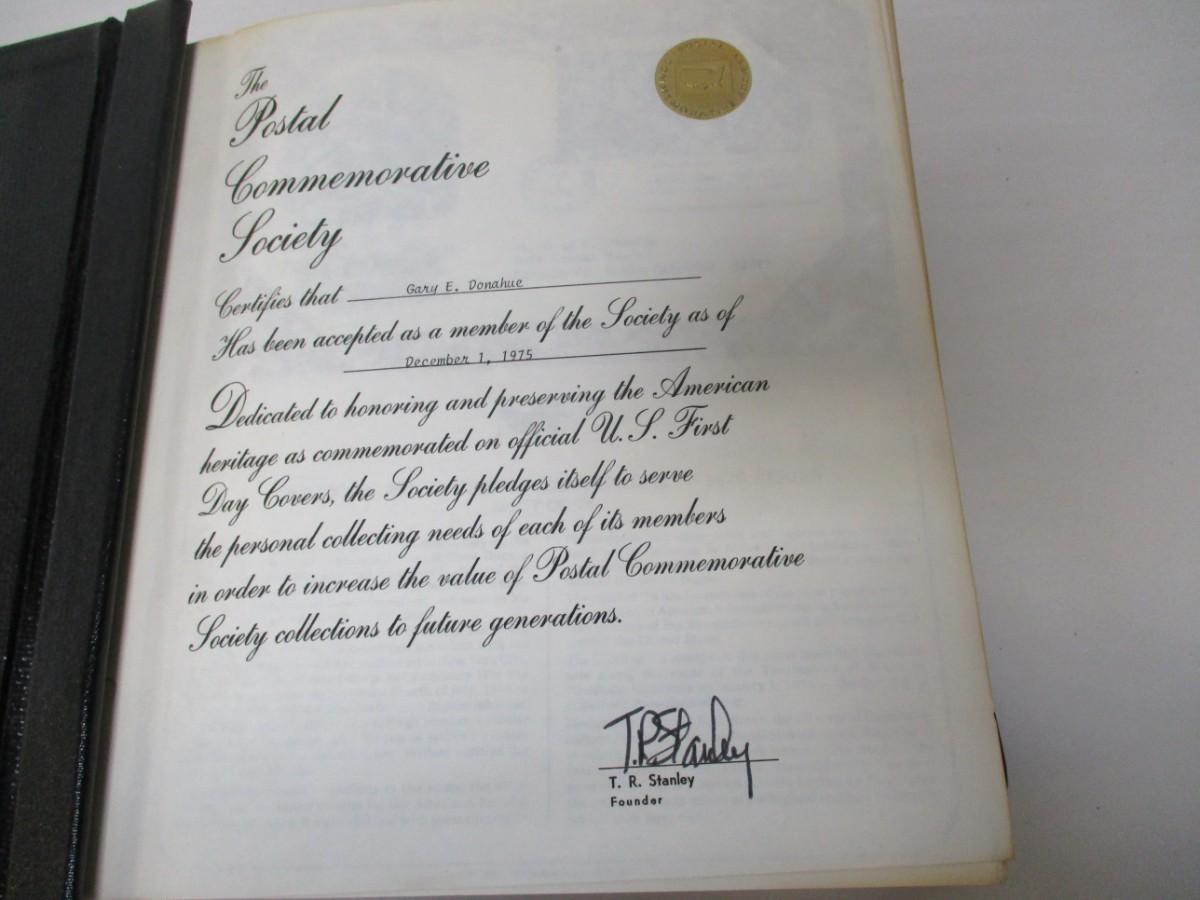 The
Postal
Commemorative
Society
Certifies that Gary E. Donahue
Has been accepted as a member of the Society as of
December 1, 1975
Dedicated to honoring and preserving the American
heritage as commemorated on official U. S. First
Day Covers, the Society pledges itself to serve
the personal collecting needs of each of its members
in order to increase the value of Postal Commemorative
Society collections to future generations.
T. R. Stanley
T. R. Stanley
Founder